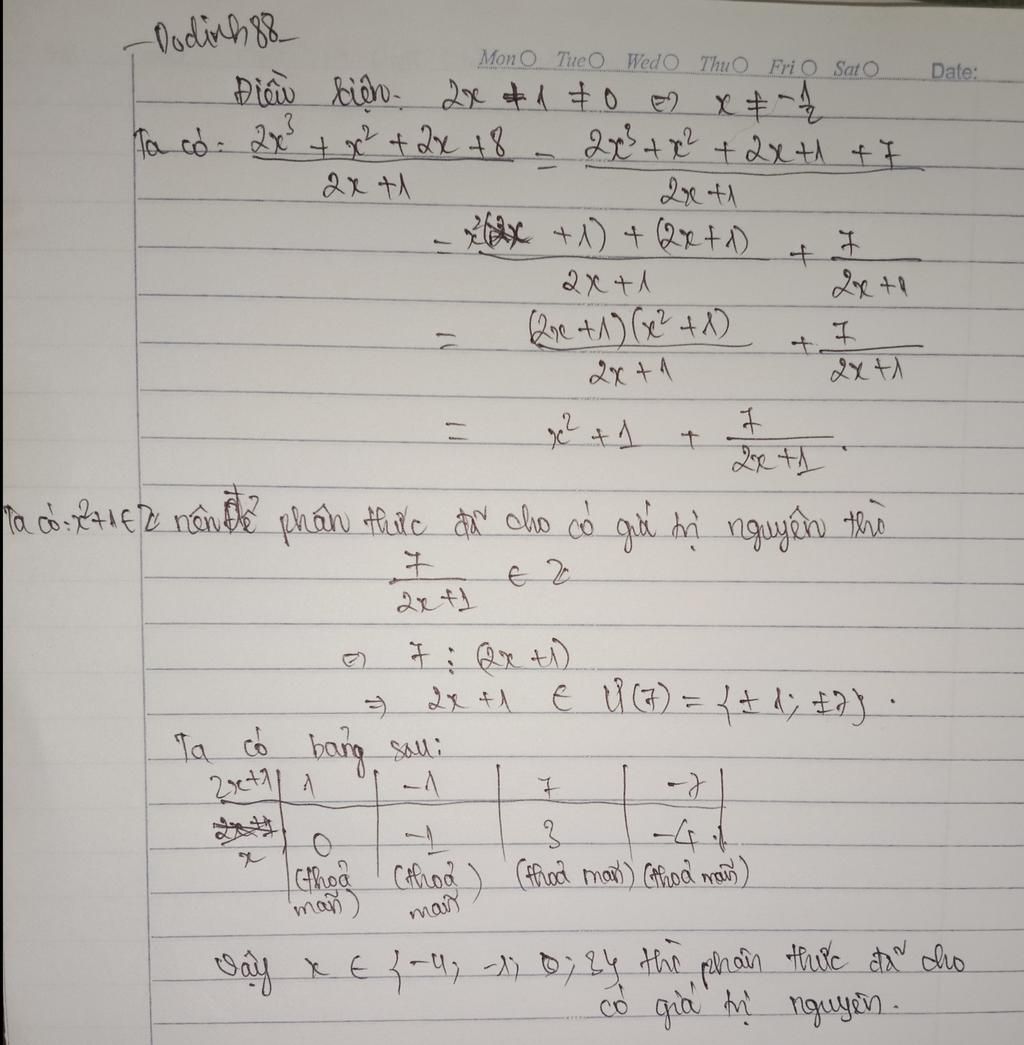 -Dodinh88-
Mon Tue Wed Thu Fri Sat Date:
Điều kiện. 2x + 1 ≠ 0 ⇔ x ≠ -1/2
Ta có: (2x³ + x² + 2x + 8)/(2x + 1) = (2x³ + x² + 2x + 1 + 7)/(2x + 1)
= (x²(2x + 1) + (2x + 1))/(2x + 1) + 7/(2x + 1)
= ((2x + 1)(x² + 1))/(2x + 1) + 7/(2x + 1)
= x² + 1 + 7/(2x + 1).
Ta có: x² + 1 ∈ Z nên để phân thức đã cho có giá trị nguyên thì
7/(2x + 1) ∈ Z
⇔ 7 ⋮ (2x + 1)
⇒ 2x + 1 ∈ Ư(7) = {± 1; ±7}.
Ta có bảng sau:
2x+1 | 1 | -1 | 7 | -7
x | 0 | -1 | 3 | -4
(thoả mãn) (thoả mãn) (thoả mãn) (thoả mãn)
Vậy x ∈ {-4; -1; 0; 3} thì phân thức đã cho
có giá trị nguyên.